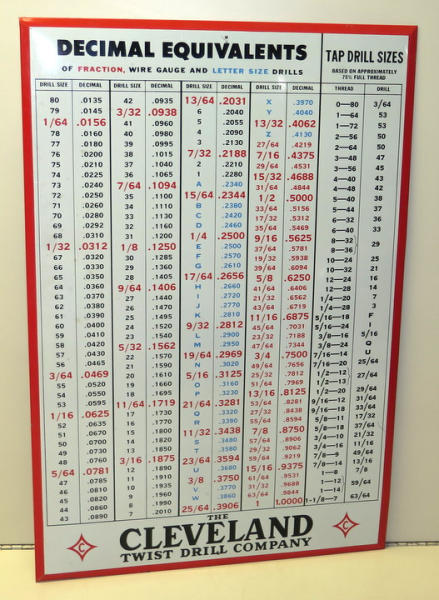 DECIMAL EQUIVALENTS
OF FRACTION, WIRE GAUGE AND LETTER SIZE DRILLS
DRILL SIZE DECIMAL
80 .0135
79 .0145
1/64 .0156
78 .0160
77 .0180
76 .0200
75 .0210
74 .0225
73 .0240
72 .0250
71 .0260
70 .0280
69 .0292
68 .0310
1/32 .0312
67 .0320
66 .0330
65 .0350
64 .0360
63 .0370
62 .0380
61 .0390
60 .0400
59 .0410
58 .0420
57 .0430
56 .0465
3/64 .0469
55 .0520
54 .0550
53 .0595
1/16 .0625
52 .0635
51 .0670
50 .0700
49 .0730
48 .0760
5/64 .0781
47 .0785
46 .0810
45 .0820
44 .0860
43 .0890
DRILL SIZE DECIMAL
42 .0935
3/32 .0938
41 .0960
40 .0980
39 .0995
38 .1015
37 .1040
36 .1065
7/64 .1094
35 .1100
34 .1110
33 .1130
32 .1160
31 .1200
1/8 .1250
30 .1285
29 .1360
28 .1405
9/64 .1406
27 .1440
26 .1470
25 .1495
24 .1520
23 .1540
5/32 .1562
22 .1570
21 .1590
20 .1610
19 .1660
18 .1695
11/64 .1719
17 .1730
16 .1770
15 .1800
14 .1820
13 .1850
3/16 .1875
12 .1890
11 .1910
10 .1935
9 .1960
8 .1990
7 .2010
DRILL SIZE DECIMAL
13/64 .2031
6 .2040
5 .2055
4 .2090
3 .2130
7/32 .2188
2 .2210
1 .2280
A .2340
15/64 .2344
B .2380
C .2420
D .2460
1/4 .2500
E .2500
F .2570
G .2610
17/64 .2656
H .2660
I .2720
J .2770
K .2810
9/32 .2812
L .2900
M .2950
19/64 .2969
N .3020
5/16 .3125
O .3160
P .3230
21/64 .3281
Q .3320
R .3390
11/32 .3438
S .3480
T .3580
23/64 .3594
U .3680
3/8 .3750
V .3770
W .3860
25/64 .3906
DRILL SIZE DECIMAL
X .3970
Y .4040
13/32 .4062
Z .4130
27/64 .4219
7/16 .4375
29/64 .4531
15/32 .4688
31/64 .4844
1/2 .5000
33/64 .5156
17/32 .5312
35/64 .5469
9/16 .5625
37/64 .5781
19/32 .5938
39/64 .6094
5/8 .6250
41/64 .6406
21/32 .6562
43/64 .6719
11/16 .6875
45/64 .7031
23/32 .7188
47/64 .7344
3/4 .7500
49/64 .7656
25/32 .7812
51/64 .7969
13/16 .8125
53/64 .8281
27/32 .8438
55/64 .8594
7/8 .8750
57/64 .8906
29/32 .9062
59/64 .9219
15/16 .9375
61/64 .9531
31/32 .9688
63/64 .9844
1 1.0000
TAP DRILL SIZES
BASED ON APPROXIMATELY
75% FULL THREAD
THREAD DRILL
0—80 3/64
1—64 53
1—72 53
2—56 50
2—64 50
3—48 47
3—56 45
4—40 43
4—48 42
5—40 38
5—44 37
6—32 36
6—40 33
8—32 29
8—36 29
10—24 25
10—32 21
12—24 16
12—28 14
1/4—20 7
1/4—28 3
5/16—18 F
5/16—24 I
3/8—16 5/16
3/8—24 Q
7/16—14 U
7/16—20 25/64
1/2—12 27/64
1/2—13 27/64
1/2—20 29/64
9/16—12 31/64
9/16—18 33/64
5/8—11 17/32
5/8—18 37/64
3/4—10 21/32
3/4—16 11/16
7/8—9 49/64
7/8—14 13/16
1—8 7/8
1—12 59/64
1—14
1-1/8—7 63/64
THE
CLEVELAND
TWIST DRILL COMPANY
C
C